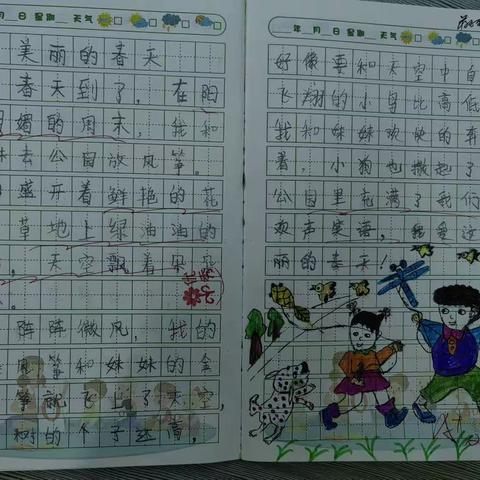 月 日 星期 天气
美丽的春天
春天到了，在阳
媚的周末，我和
妹去公园放风筝。
盛开着鲜艳的花
草地上绿油油的
，天空飘着朵朵
阵阵微风，我的
筝和妹妹的金
筝就飞上了天空，
树的个子还高，
年 月 日 星期 天气
好像要和天空中自
飞翔的小鸟比高低
我和妹妹欢快的奔
着，小狗也撒起了
公园里充满了我们
欢声笑语，我爱这
丽的春天！